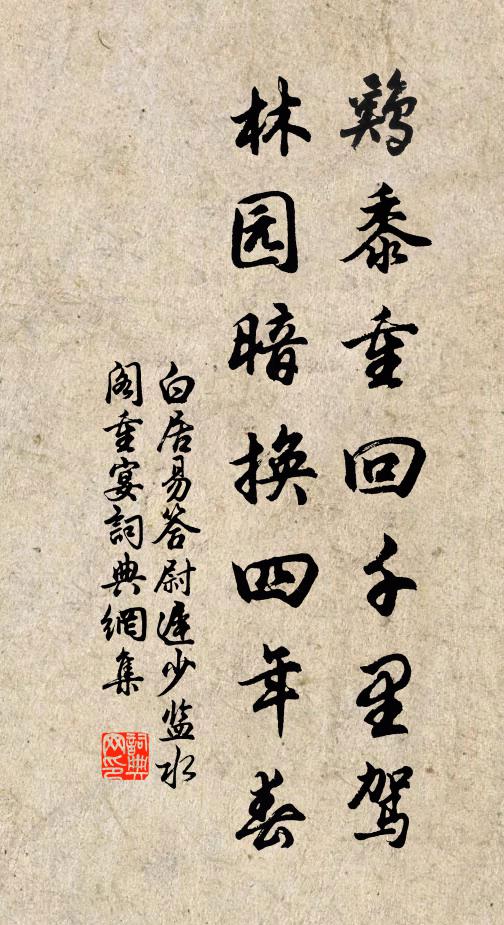 鷄黍重回千里駕
林园暗換四年春
白居易答尉遲少监水
阁重宴詞典網集
詞典网印